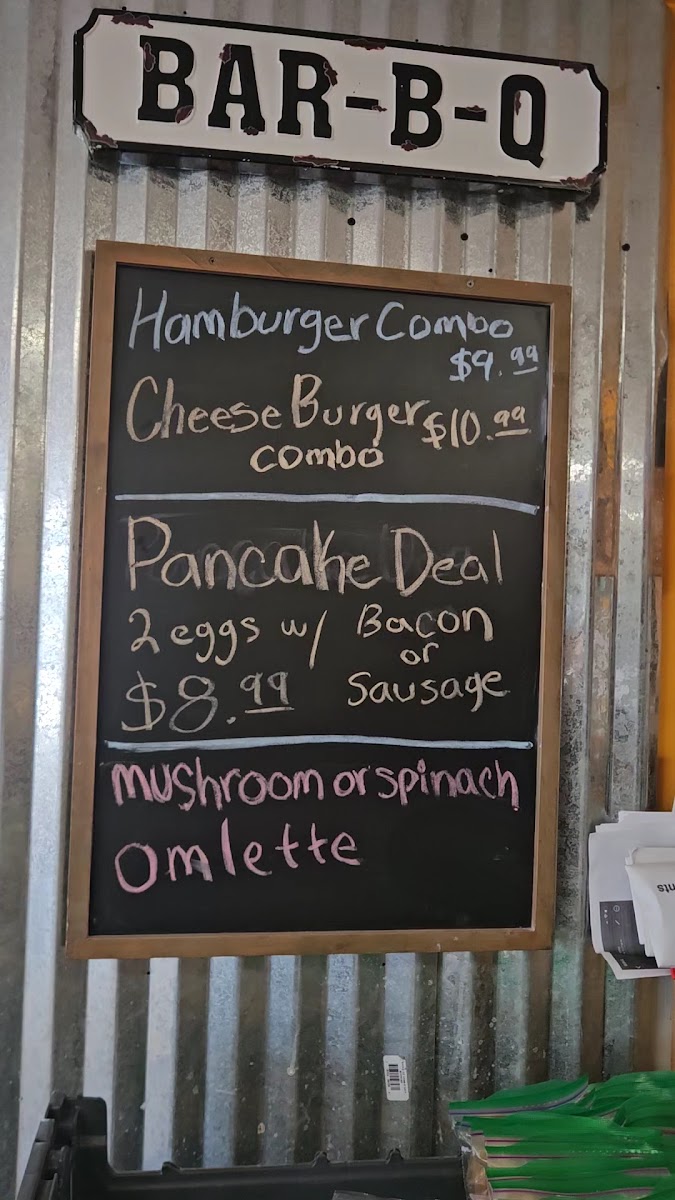 BAR-B-Q
Hamburger Combo
$9.99
Cheese Burger $10.99
combo
Pancake Deal
2 eggs w/ Bacon
or
$8.99 Sausage
mushroom or spinach
omlette